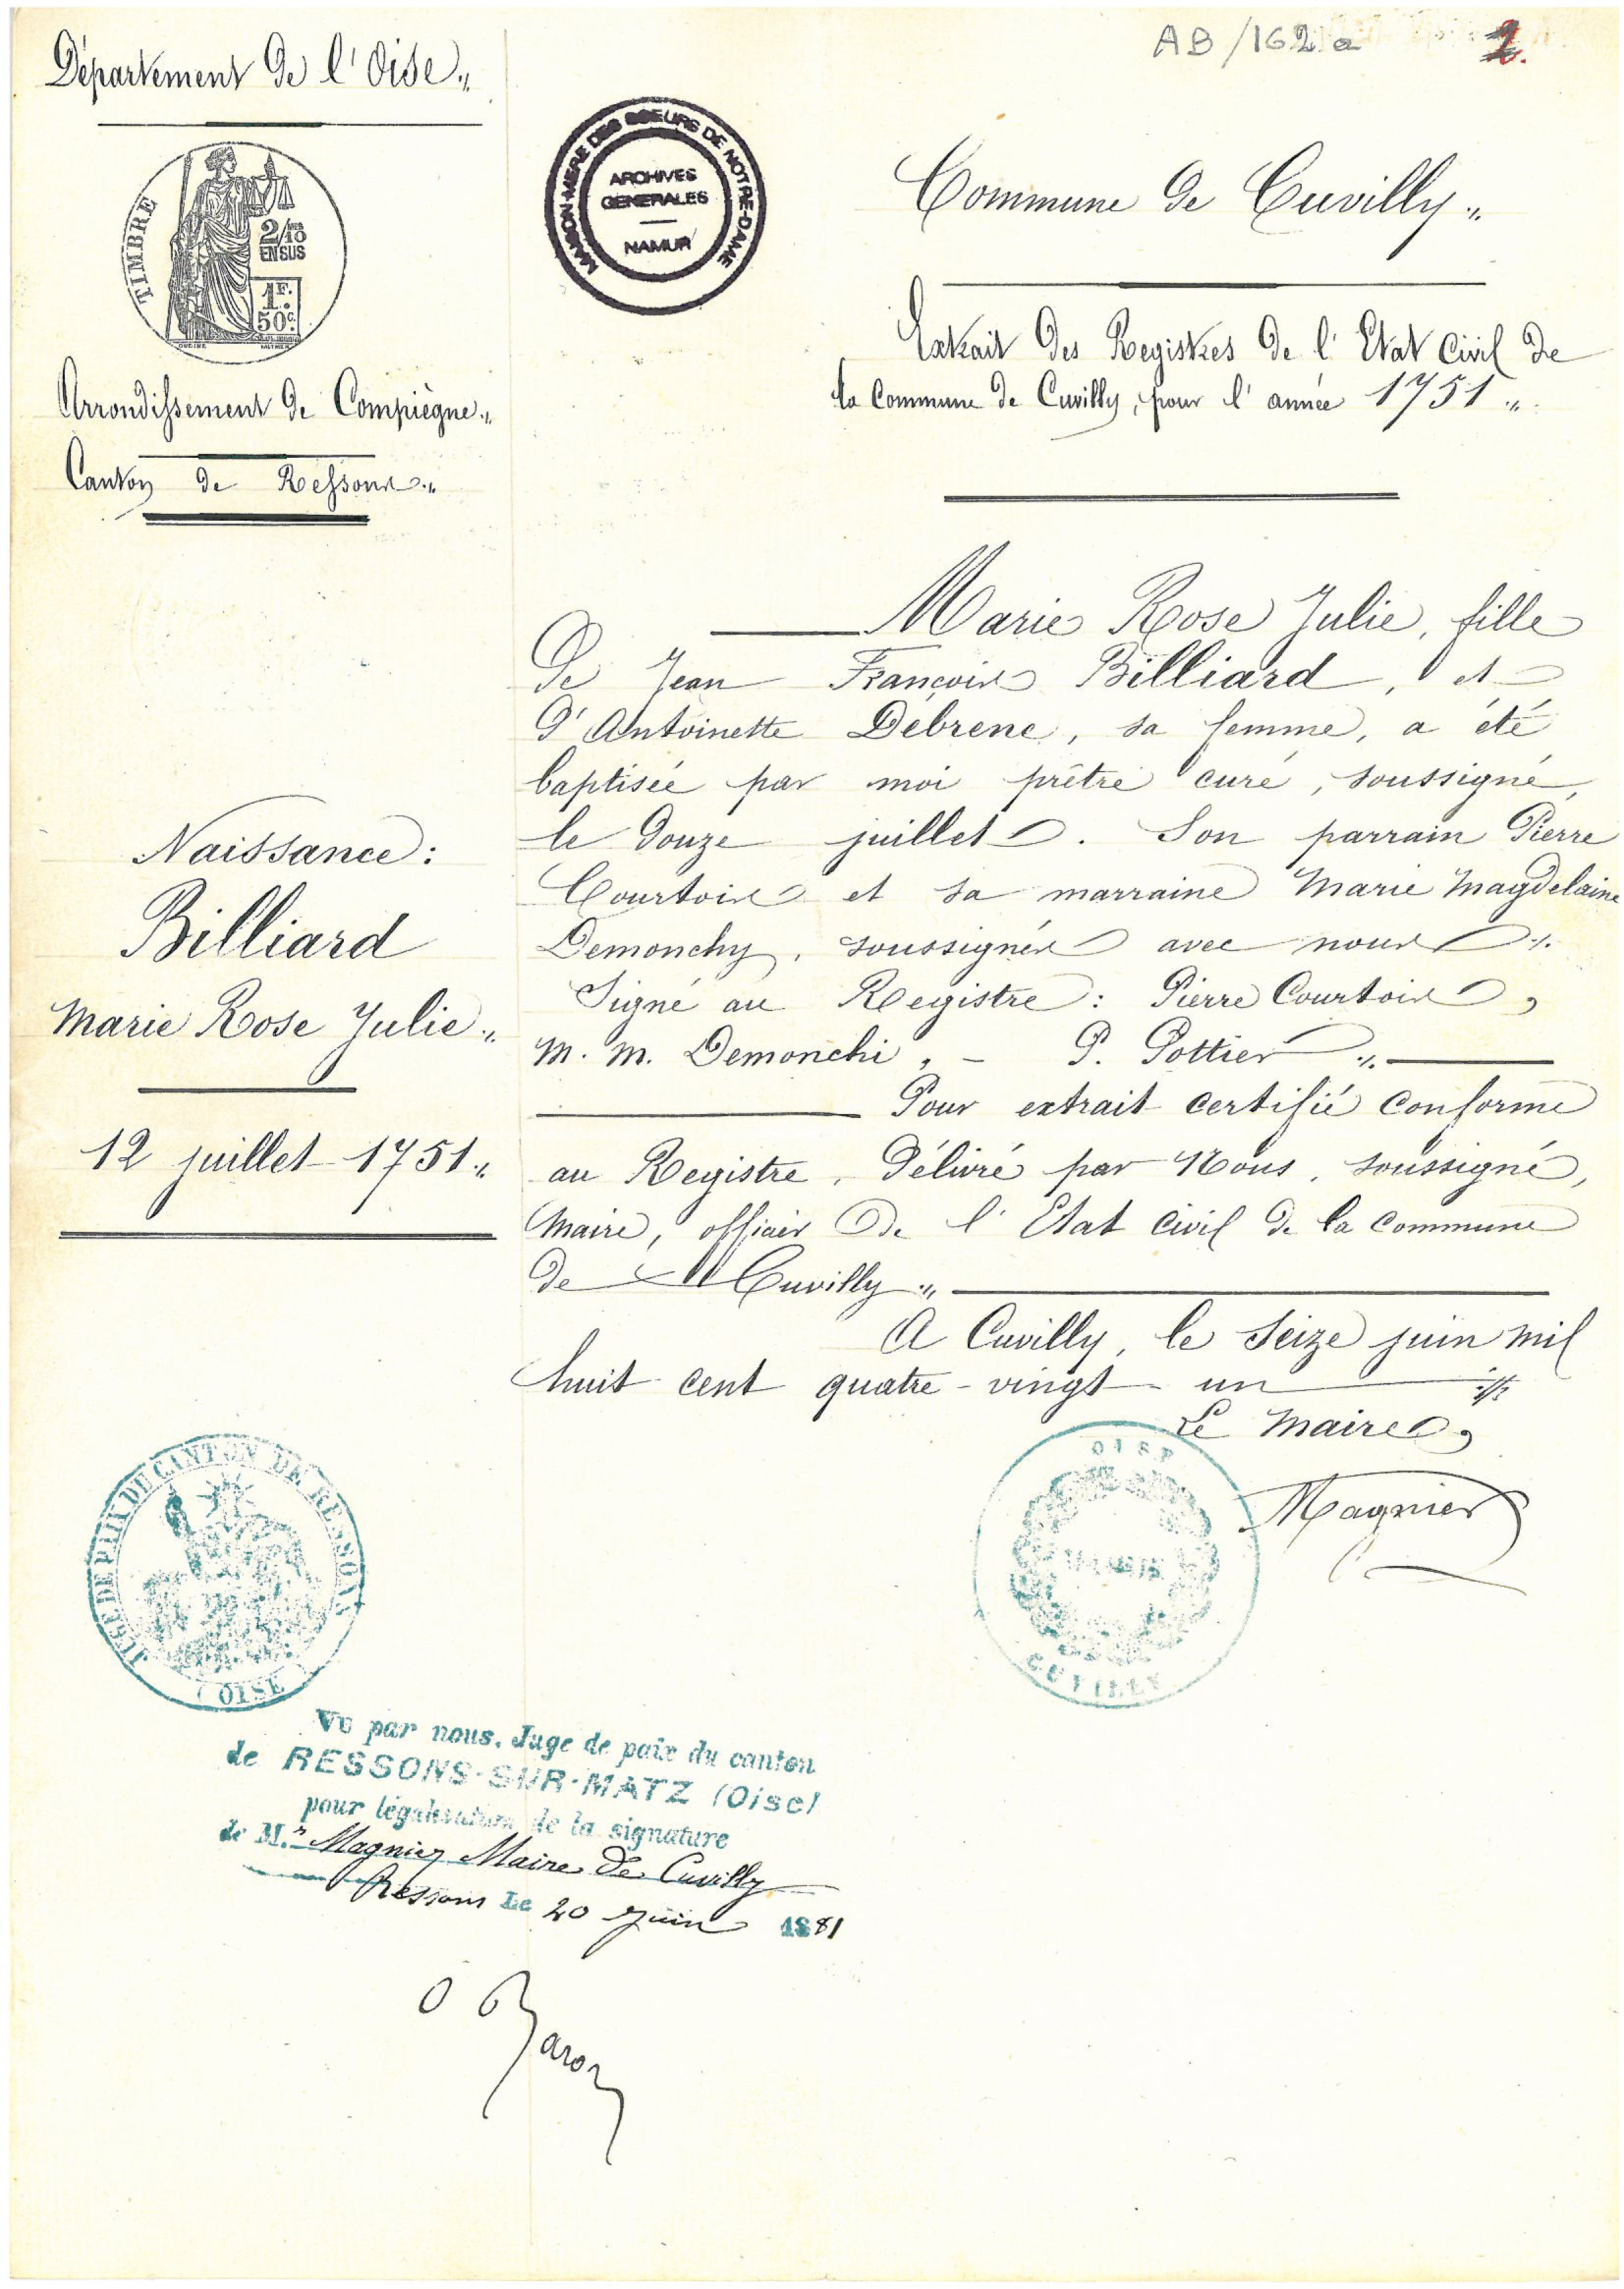 AB/162 a
2.
Département de l'Oise „
TIMBRE
2/10 MES
EN SUS
1F.
50c.
Arrondissement de Compiègne „
Canton de Ressons „
MAISON-MERE DES SOEURS DE NOTRE-DAME
ARCHIVES
GENERALES
NAMUR
Commune de Cuvilly „
Extrait des Registres de l'Etat Civil de
la Commune de Cuvilly, pour l'année 1751 „
Naissance :
Billiard
Marie Rose Julie „
12 juillet 1751 „
Marie Rose Julie, fille
De Jean François Billiard, et
d'Antoinette Débrene, sa femme, a été
baptisée par moi prêtre curé, soussigné,
le douze juillet. Son parrain Pierre
Courtois et sa marraine Marie Magdelaine
Demonchy, soussignés avec nous ./.
Signé au Registre : Pierre Courtois,
M. M. Demonchi, - P. Pottier ./.
Pour extrait certifié conforme
au Registre, Délivré par Nous, soussigné,
Maire, officier de l'Etat Civil de la Commune
de Cuvilly „
A Cuvilly, le seize juin mil
huit cent quatre-vingt-un
Le Maire,
Magnier
OISE
CUVILLY
JUGE DE PAIX DU CANTON DE RESSONS
(OISE)
Vu par nous, Juge de paix du canton
de RESSONS-SUR-MATZ (Oise)
pour légalisation de la signature
de M.r Magnier Maire de Cuvilly
Ressons Le 20 Juin 1881
O Baron